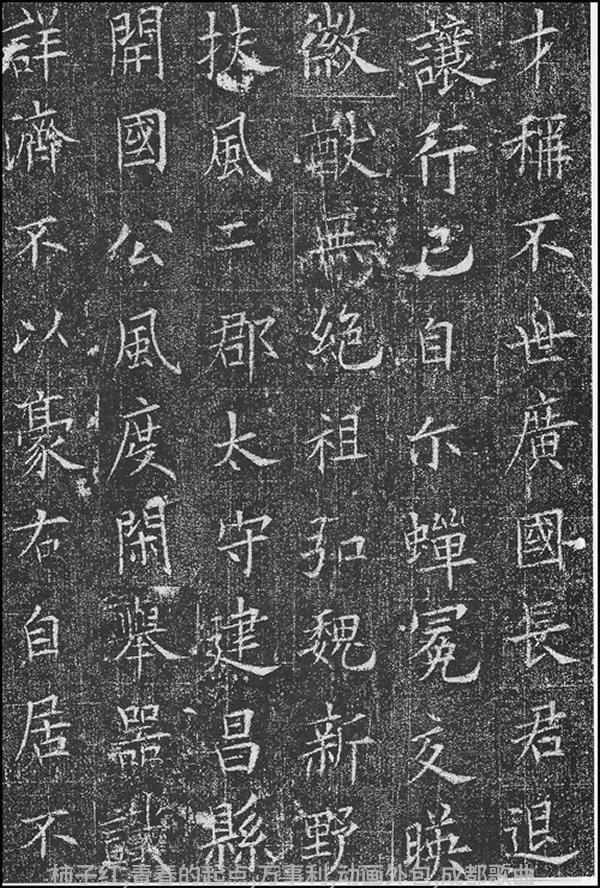 才稱不世廣國長君退
讓行己自尔蟬冕交暎
徽猷無絕祖弘魏新野
扶風二郡太守建昌縣
開國公風度閑舉器識
詳濟不以豪右自居不
柿子红,青春的起点,万事利,动画外包,成都歌曲